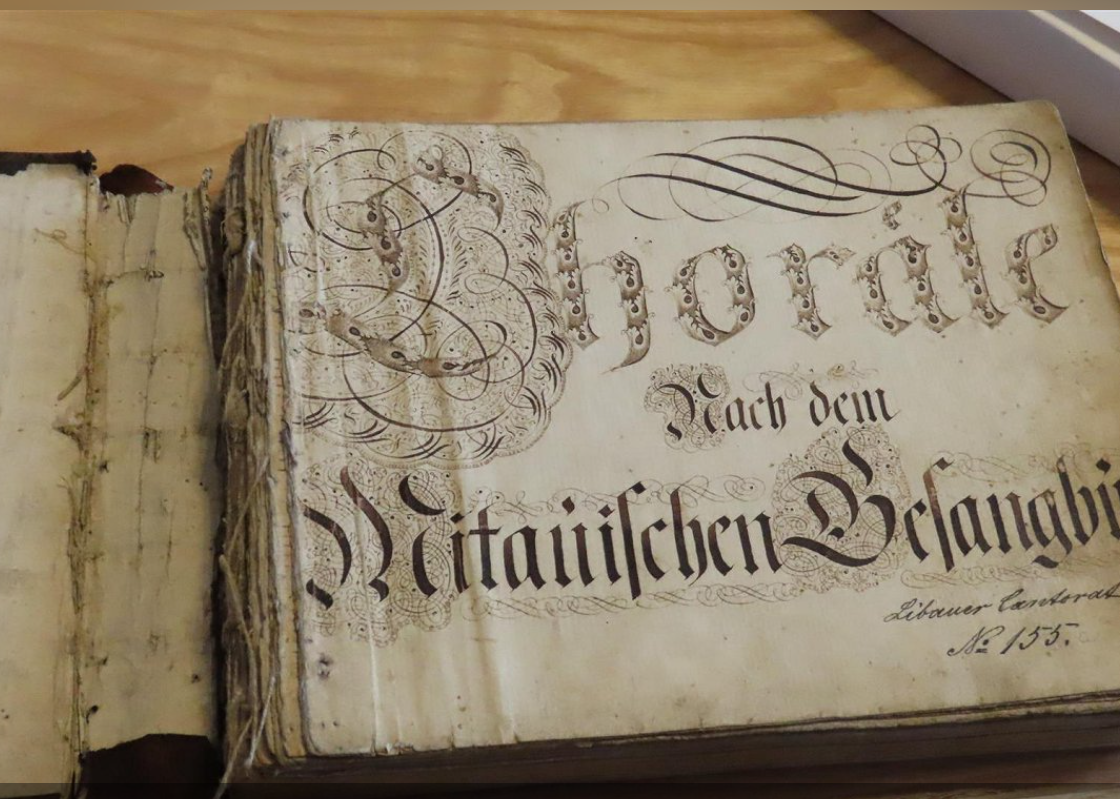 Choräle
Nach dem
Mitauischen Gesangbu
Libauer Cantorat
No 155.